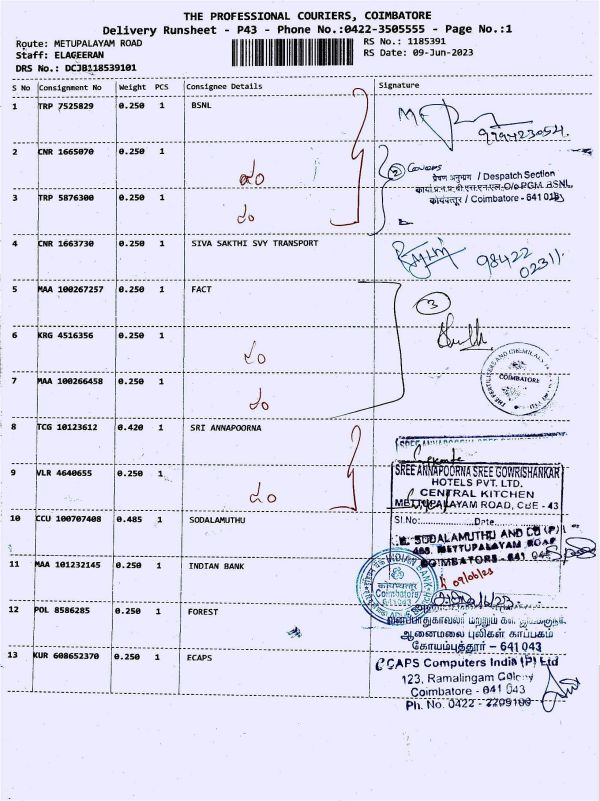 THE PROFESSIONAL COURIERS, COIMBATORE
Delivery Runsheet - P43 - Phone No.:0422-3505555 - Page No.:1
Route: METUPALAYAM ROAD
RS No.: 1185391
Staff: ELAGEERAN
RS Date: 09-Jun-2023
DRS No.: DCJB118539101
S No Consignment No Weight PCS Consignee Details Signature
1 TRP 7525829 0.250 1 BSNL
2 CNR 1665070 0.250 1
2
प्रेषण अनुभाग / Despatch Section
O/o PGM. BSNL,
कोयंबत्तूर / Coimbatore - 641 043
3 TRP 5876300 0.250 1
4 CNR 1663730 0.250 1 SIVA SAKTHI SVY TRANSPORT
98422
02311
5 MAA 100267257 0.250 1 FACT
3
6 KRG 4516356 0.250 1
7 MAA 100266458 0.250 1
COIMBATORE
8 TCG 10123612 0.420 1 SRI ANNAPOORNA
9 VLR 4640655 0.250 1
SREE ANNAPOORNA SREE GOWRISHANKAR
HOTELS PVT. LTD.
CENTRAL KITCHEN
METTUPALAYAM ROAD, CBE - 43
Sl.No: Date
10 CCU 100707408 0.485 1 SODALAMUTHU
SODALAMUTHU AND CO (P)
METTUPALAYAM ROAD
COIMBATORE - 641 043
11 MAA 101232145 0.250 1 INDIAN BANK
INDIAN BANK
Coimbatore
09/06/23
12 POL 8586285 0.250 1 FOREST
ஆனைமலை புலிகள் காப்பகம்
கோயம்புத்தூர் - 641 043
13 KUR 608652370 0.250 1 ECAPS
ECAPS Computers India (P) Ltd
123, Ramalingam Colony
Coimbatore - 641 043
Ph. No. 0422 - 2209100